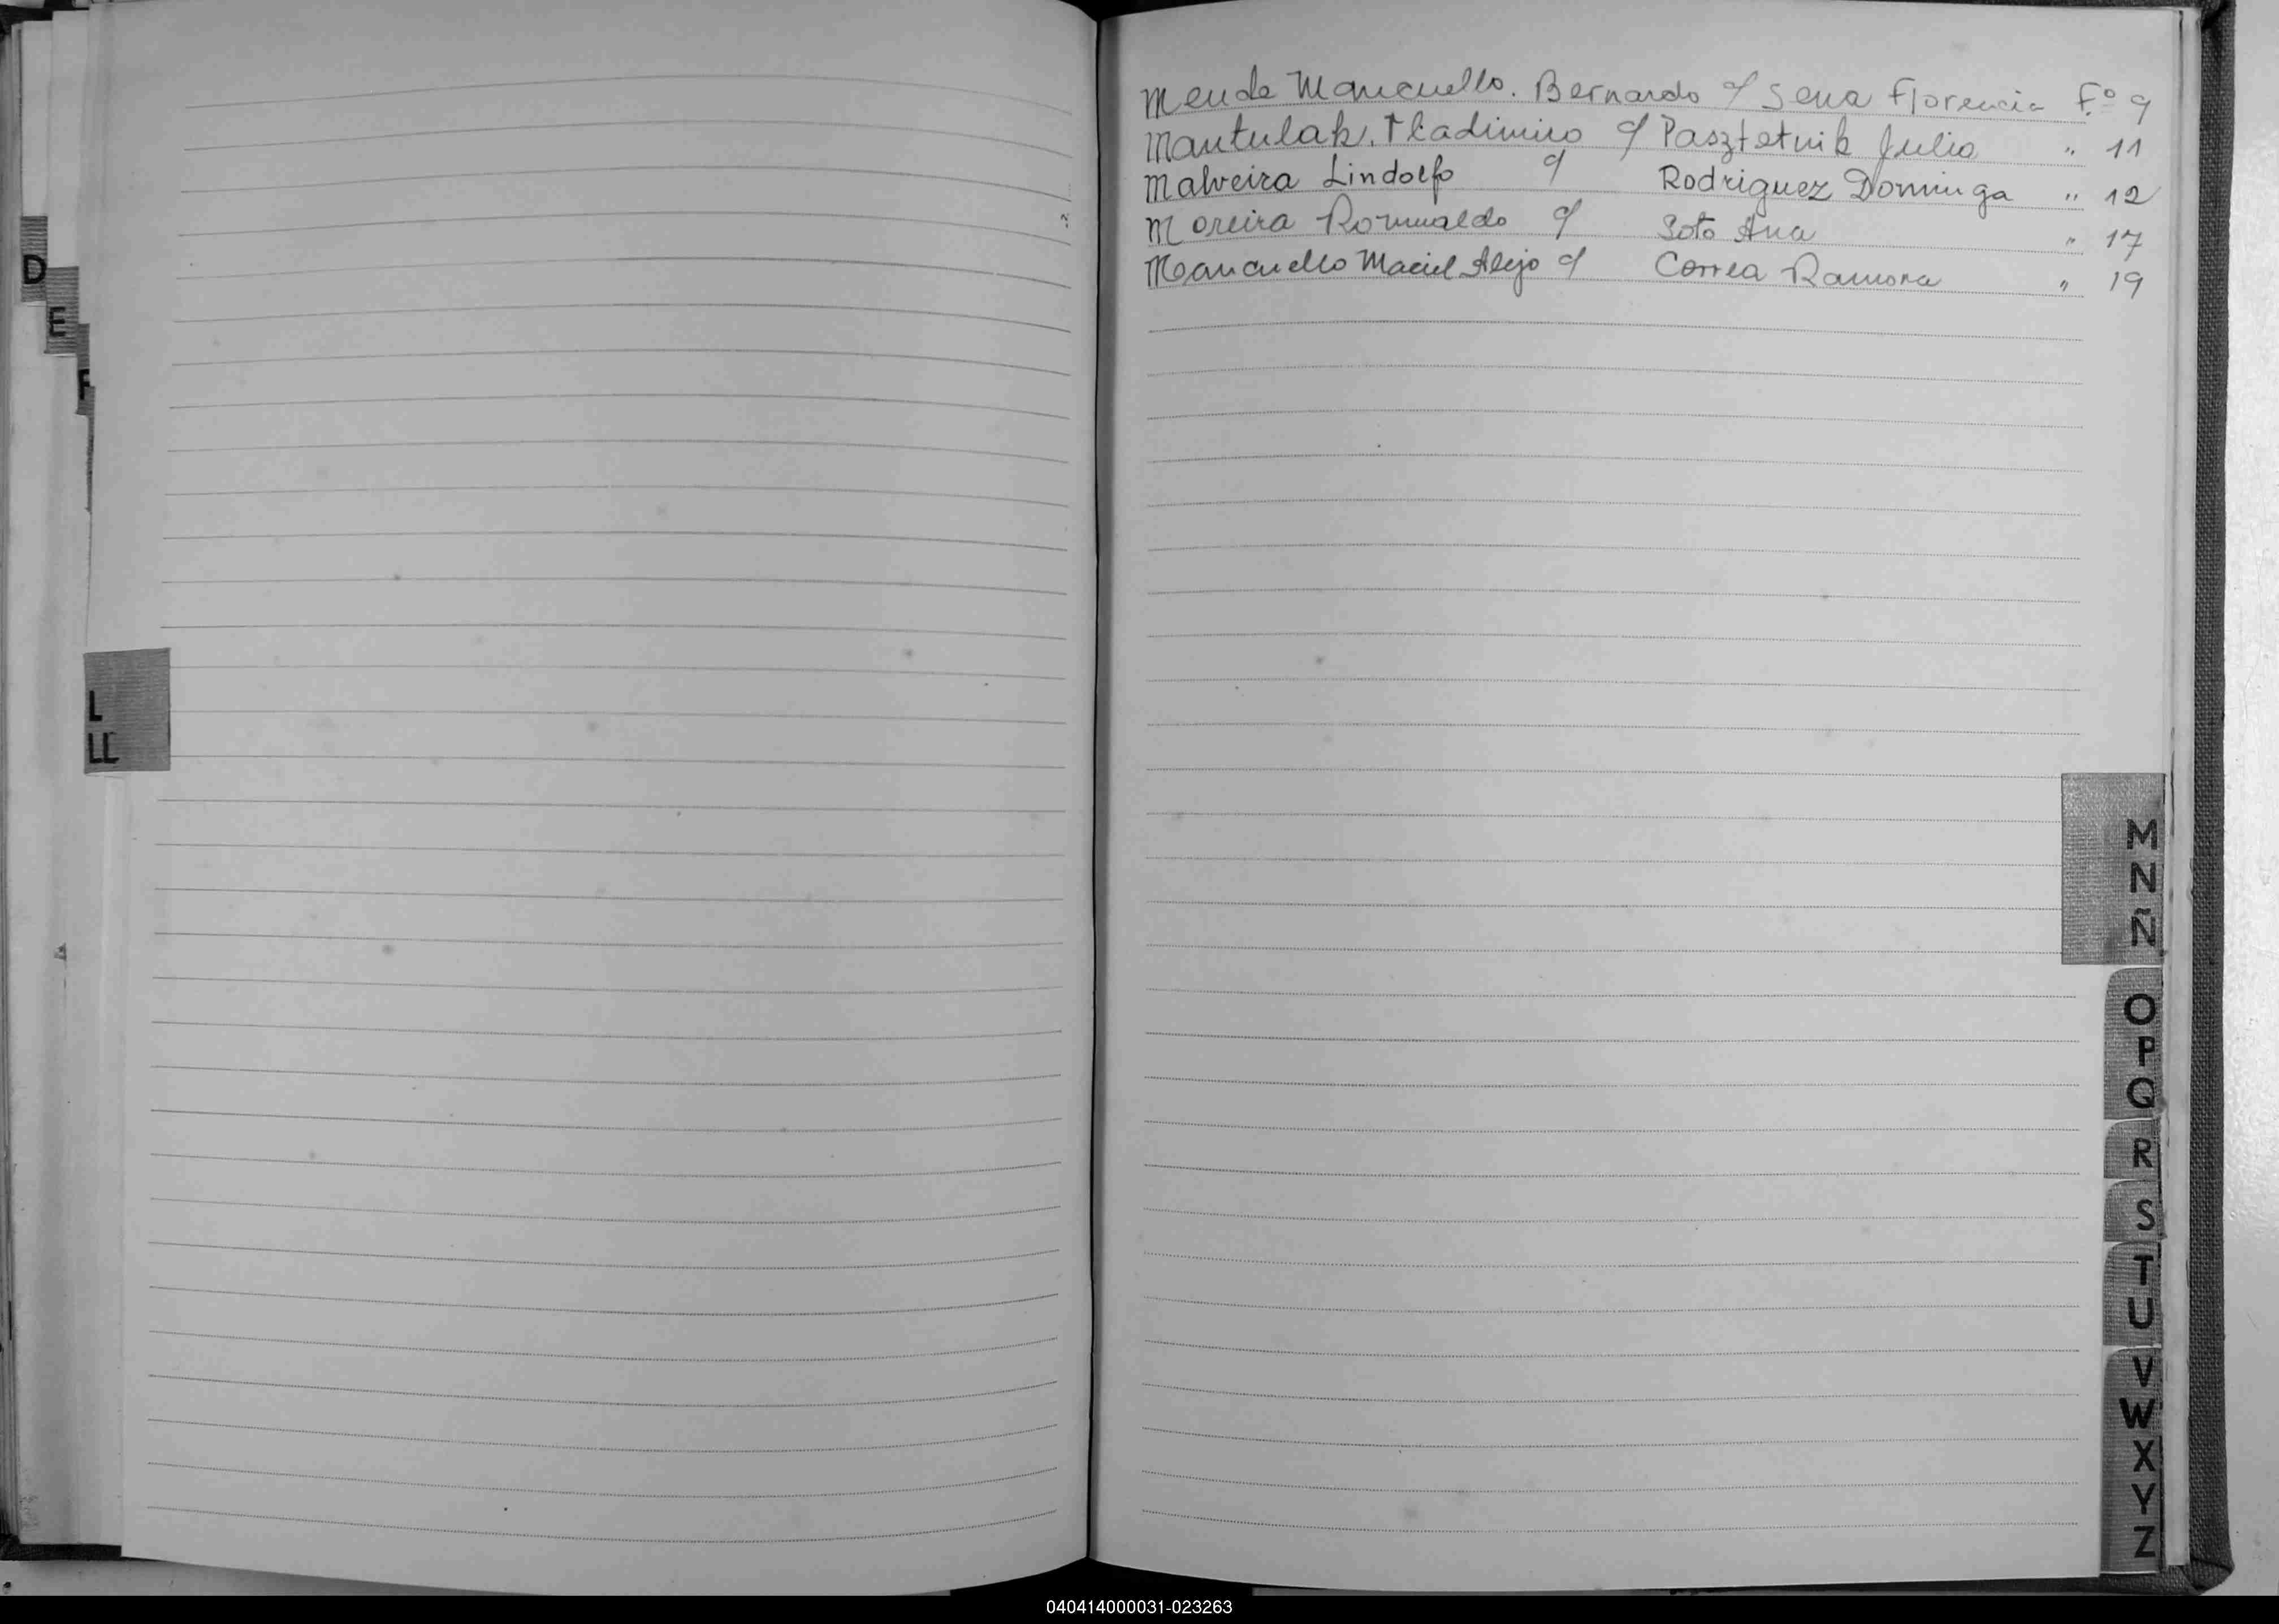 D
E
F
L
LL
Mende Mancuello. Bernardo c/ Sena Florencia Fº 9
Mantulak. Vladimiro c/ Pasztetnik Julia " 11
Malveira Lindolfo c/ Rodriguez Dominga " 12
Moreira Romualdo c/ Soto Ana " 17
Mancuello Maciel Alejo c/ Correa Ramona " 19
M
N
Ñ
O
P
Q
R
S
T
U
V
W
X
Y
Z
040414000031-023263